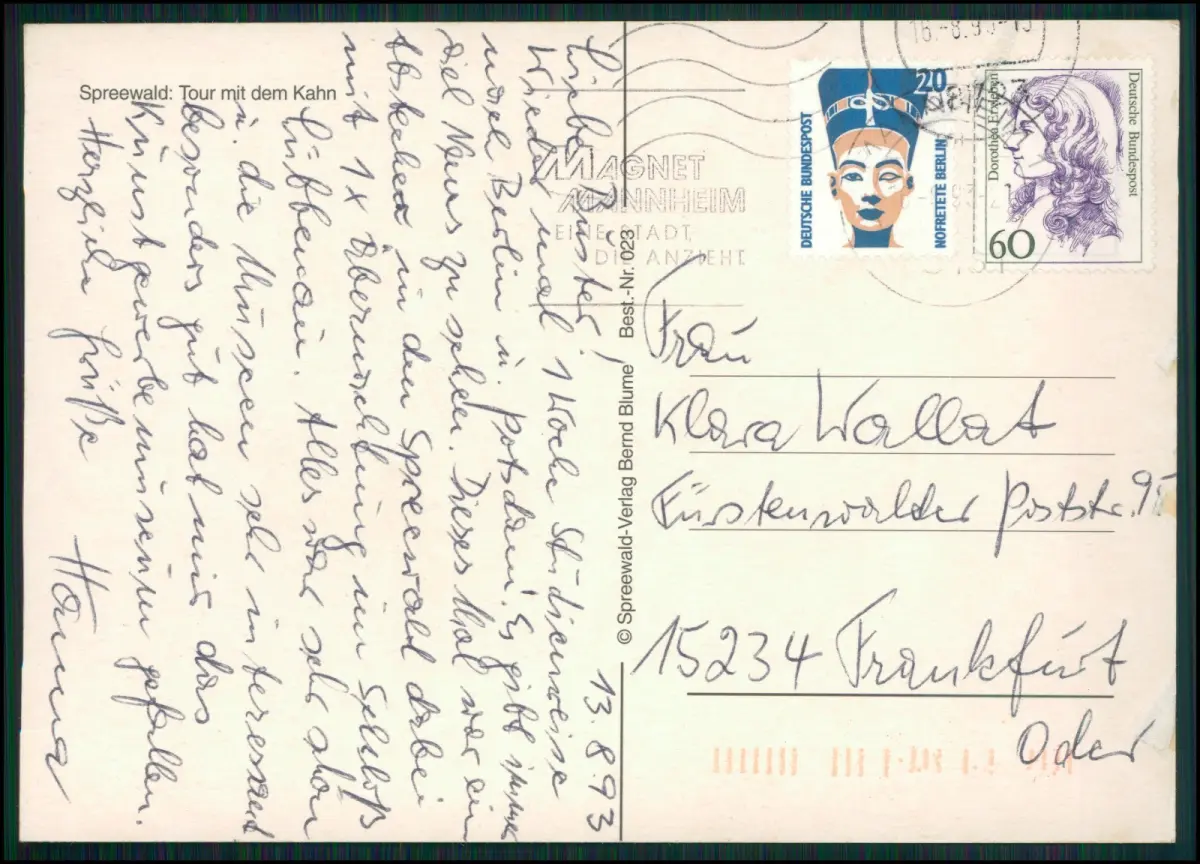 Spreewald: Tour mit dem Kahn
13.8.93
Liebe Schwester!
Wieder mal 1 Woche Studienreise
nach Berlin u. Potsdam. Es gibt immer
viel Neues zu sehen. Dieses Mal war ein
Abstecher in den Spreewald dabei
mit 1x Übernachtung im Schloß
Lübbenau. Alles war sehr schön
u. die Museen sehr interessant
besonders gut hat mir das
Kunstgewerbemuseum gefallen.
Herzliche Grüße
Hanna
© Spreewald-Verlag Bernd Blume Best.-Nr. 023
MAGNET
MANNHEIM
EINE STADT,
DIE ANZIEHT
DEUTSCHE BUNDESPOST
20
NOFRETETE BERLIN
Dorothea Erxleben
Deutsche Bundespost
60
Frau
Klara Wallat
Fürstenwalder Poststr. 95
15234 Frankfurt
Oder